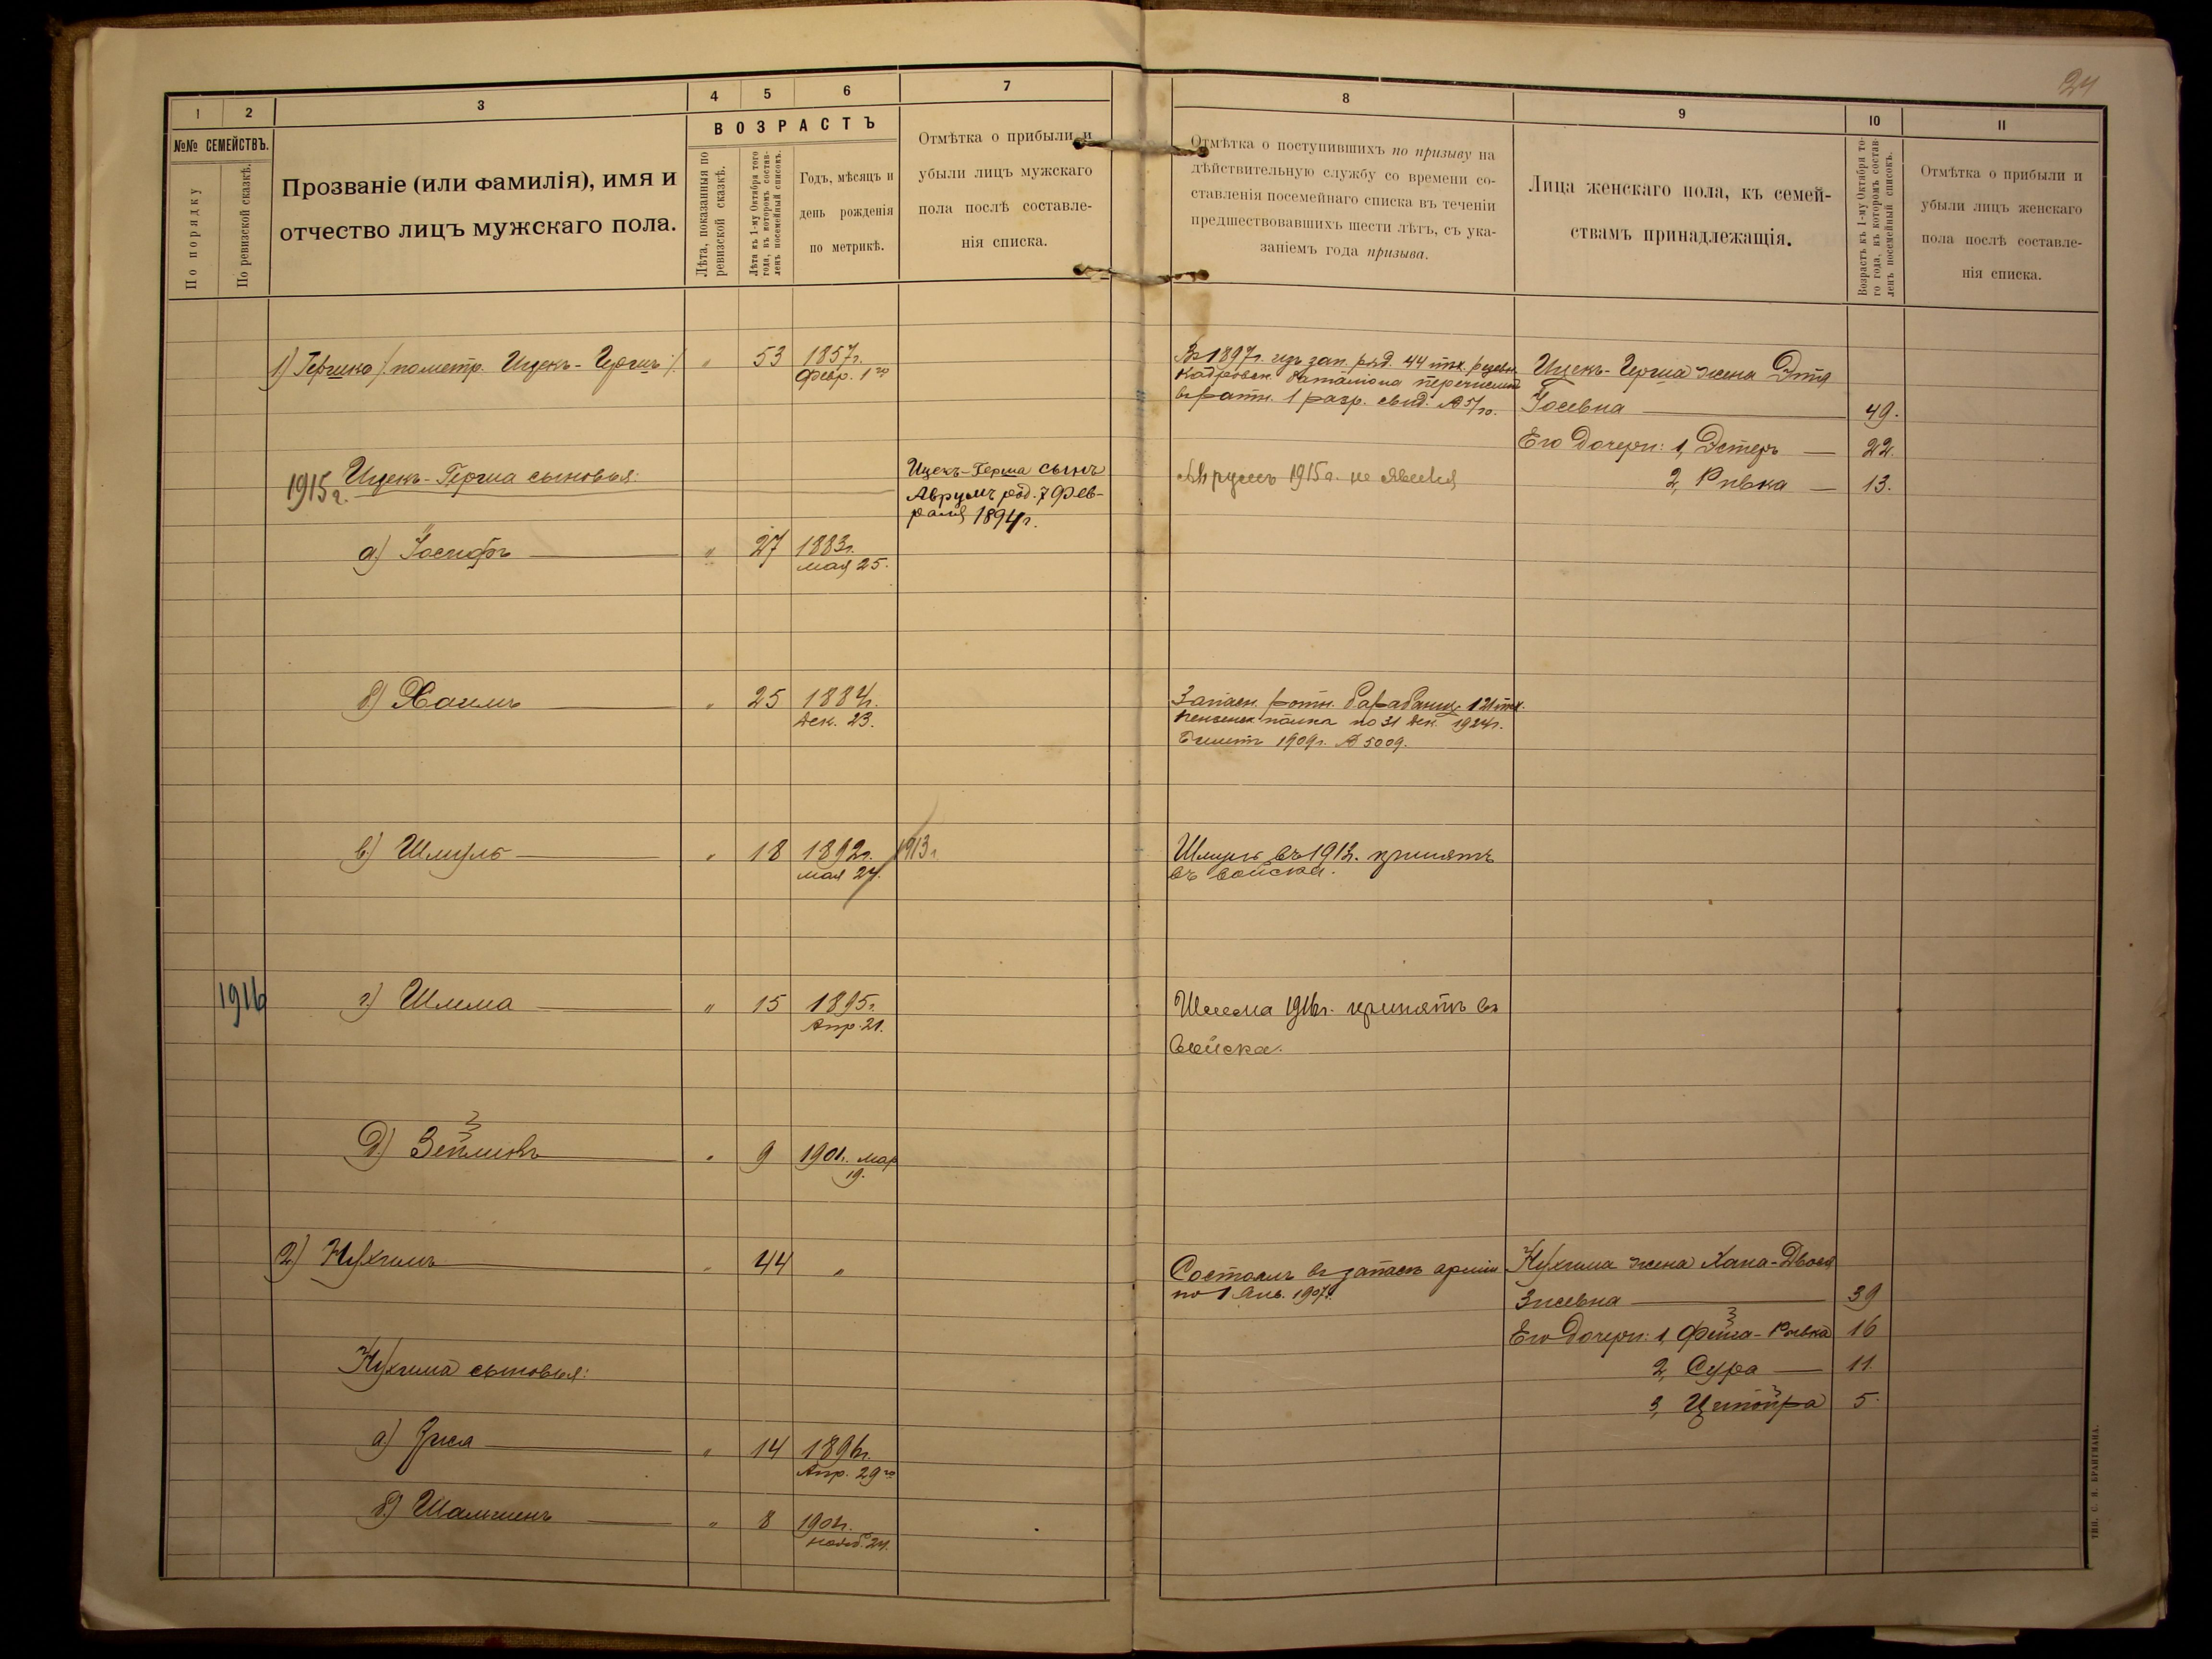 24
1 2 3 4 5 6 7
№№ СЕМЕЙСТВЪ.
По порядку
По ревизской сказкѣ.
Прозваніе (или фамилія), имя и
отчество лицъ мужскаго пола.
ВОЗРАСТЪ
Лѣта, показанныя по
ревизской сказкѣ.
Лѣта къ 1-му Октября того
года, въ которомъ состав-
ленъ посемейный списокъ.
Годъ, мѣсяцъ и
день рожденія
по метрикѣ.
Отмѣтка о прибыли и
убыли лицъ мужскаго
пола послѣ составле-
нія списка.
1) Гершко /: по метр. Ицекъ-Гершъ :/ " 53 1857г.
Февр. 1го
1915г. Ицекъ-Герша сыновья:
Ицекъ-Герша сынъ
Аврумъ род. 7 Фев-
раля 1894г.
а) Іосифъ " 27 1883г.
мая 25.
б) Хаимъ " 25 1884г.
Дек. 23.
в) Шмуль " 18 1892г. 1913г.
мая 24.
1916 г) Шлема " 15 1895г.
Апр. 21.
д) Зейликъ " 9 1901г. мар
19.
2) Нухимъ " 44 "
Нухима сыновья:
а) Зися " 14 1896г.
Апр. 29го
б) Шамшенъ " 8 1902г.
нояб. 24.
8 9 10 11
Отмѣтка о поступившихъ по призыву на
дѣйствительную службу со времени со-
ставленія посемейнаго списка въ теченіи
предшествовавшихъ шести лѣтъ, съ ука-
заніемъ года призыва.
Лица женскаго пола, къ семей-
ствамъ принадлежащія.
Возрастъ къ 1-му Октября то-
го года, въ которомъ состав-
ленъ посемейный списокъ.
Отмѣтка о прибыли и
убыли лицъ женскаго
пола послѣ составле-
нія списка.
Въ 1897г. изъ зап. ряд. 44 пѣх. резерв.
кадровск. баталіона перечисленъ
въ ратн. 1 разр. свид. №
Ицекъ-Герша жена Этя
Іосевна 49.
Его дочери: 1, Эстеръ 22.
2, Ривка 13.
Аврумъ 1915г. не явился
Запасн. ротн. барабанщ. 121 пѣх.
Пензенск. полка по 31 Дек. 1924г.
Билетъ 1909г. № 5009.
Шмуль въ 1913. принятъ
въ войска.
Шлема 1916г. принятъ въ
войска.
Состоялъ въ запасѣ арміи
по 1 Янв. 1907г.
Нухима жена Хана-Двося
Зисевна 39
Его дочери: 1, Фейга-Ривка 16
2, Сура 11.
3, Ципойра 5.
ТИП. С. Я. БРАНГМАНА.